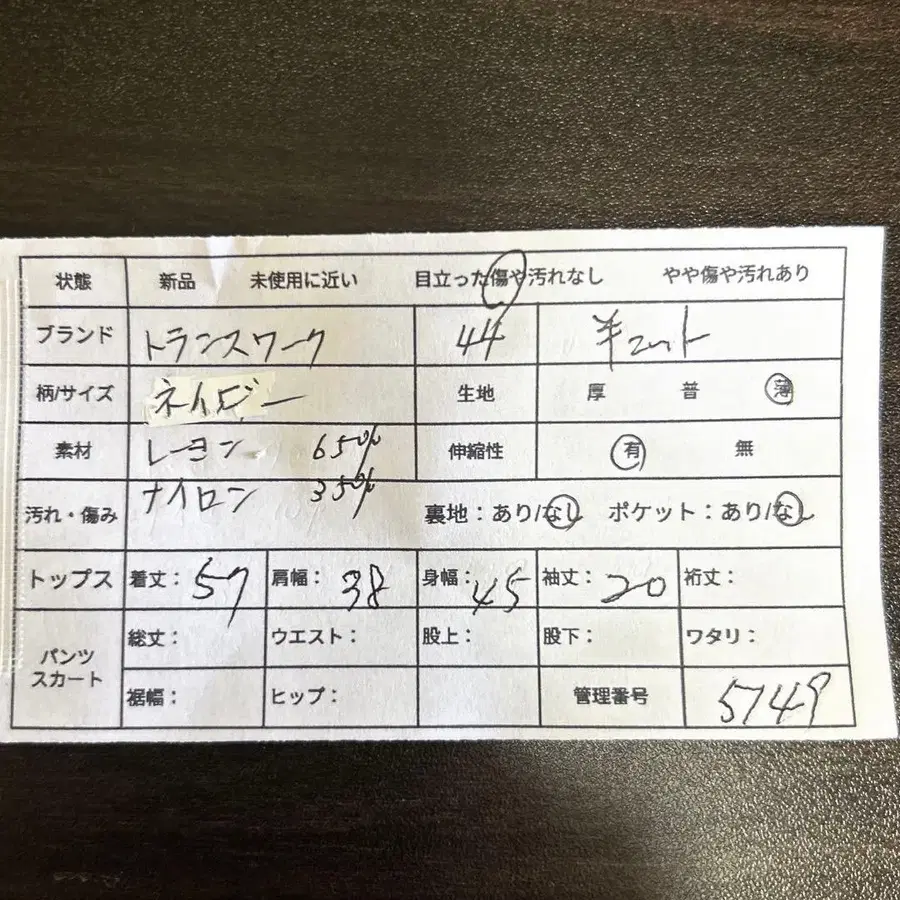 状態 新品 未使用に近い 目立った傷や汚れなし やや傷や汚れあり
ブランド トランスワーク 44 半コット
柄/サイズ ネイビー 生地 厚 普 薄
素材 レーヨン 65% 伸縮性 有 無
ナイロン 35%
汚れ・傷み 裏地：あり/なし ポケット：あり/なし
トップス 着丈：57 肩幅：38 身幅：45 袖丈：20 裄丈：
パンツ スカート 総丈： ウエスト： 股上： 股下： ワタリ：
裾幅： ヒップ： 管理番号 5749